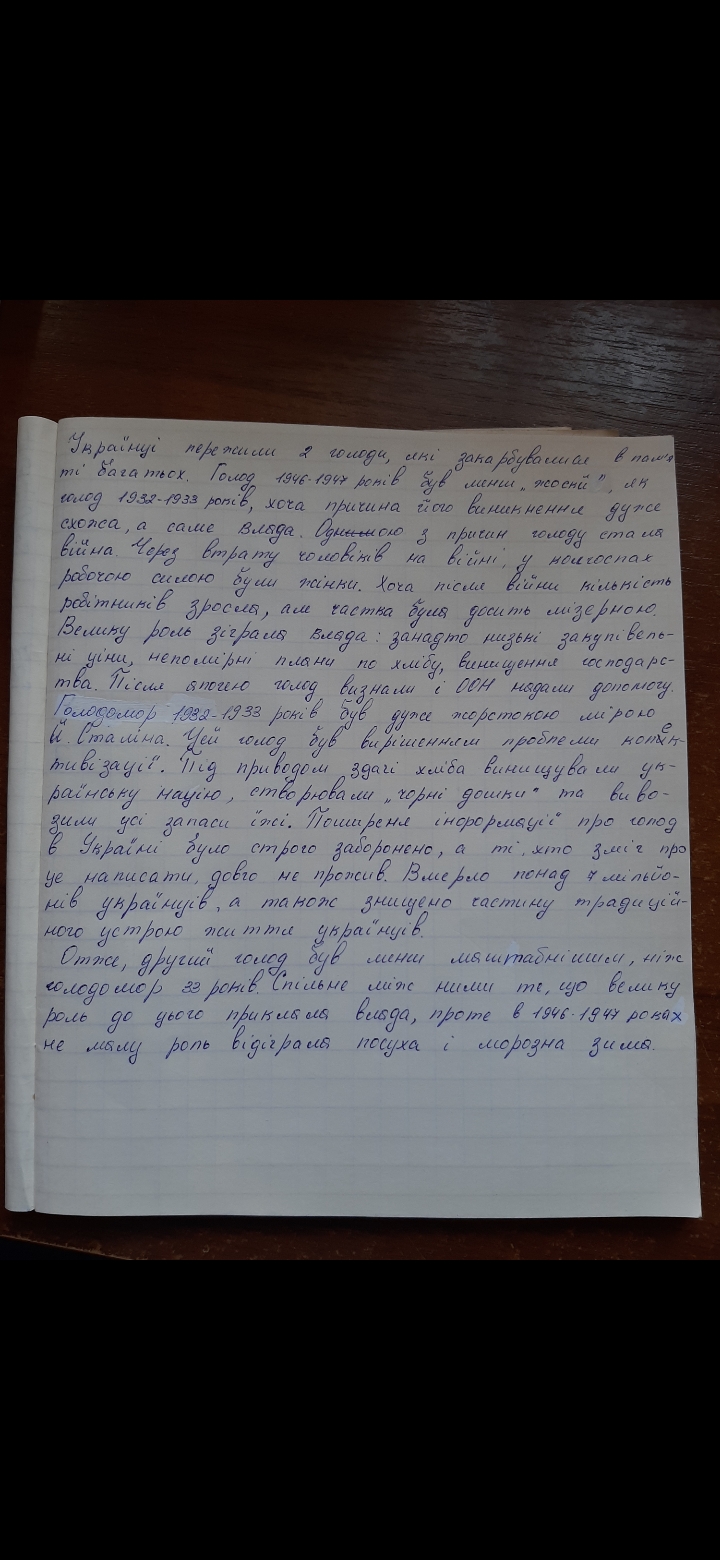 Українці пережили 2 голоди, які закарбувалися в пам'я
ті багатьох. Голод 1946-1947 років був менш „жоский", як
голод 1932-1933 років, хоча причина його виникнення дуже
схожа, а саме влада. Одниною з причин голоду стала
війна. Через втрату чоловіків на війні, у колгоспах
робочою силою були жінки. Хоча після війни кількість
робітників зросла, але частка була досить мізерною.
Велику роль зіграла влада: занадто низькі закупівель-
ні ціни, непомірні плани по хлібу, винищення господарс-
тва. Після апогею голод визнали і ООН надали допомогу.
Голодомор 1932-1933 років був дуже жорстокою мірою
Й. Сталіна. Цей голод був вирішенням проблеми колек-
тивізації. Під приводом здачі хліба винищували ук-
раїнську націю, створювали „чорні дошки" та виво-
зили усі запаси їжі. Поширеня інформації про голод
в Україні було строго заборонено, а ті, хто зміг про
це написати, довго не прожив. Вмерло понад 7 мільйо-
нів українців, а також знищено частину традицій-
ного устрою життя українців.
Отже, другий голод був менш маштабнішим, ніж
голодомор 33 років. Спільне між ними те, що велику
роль до цього приклала влада, проте в 1946-1947 роках
не малу роль відіграла посуха і морозна зима.